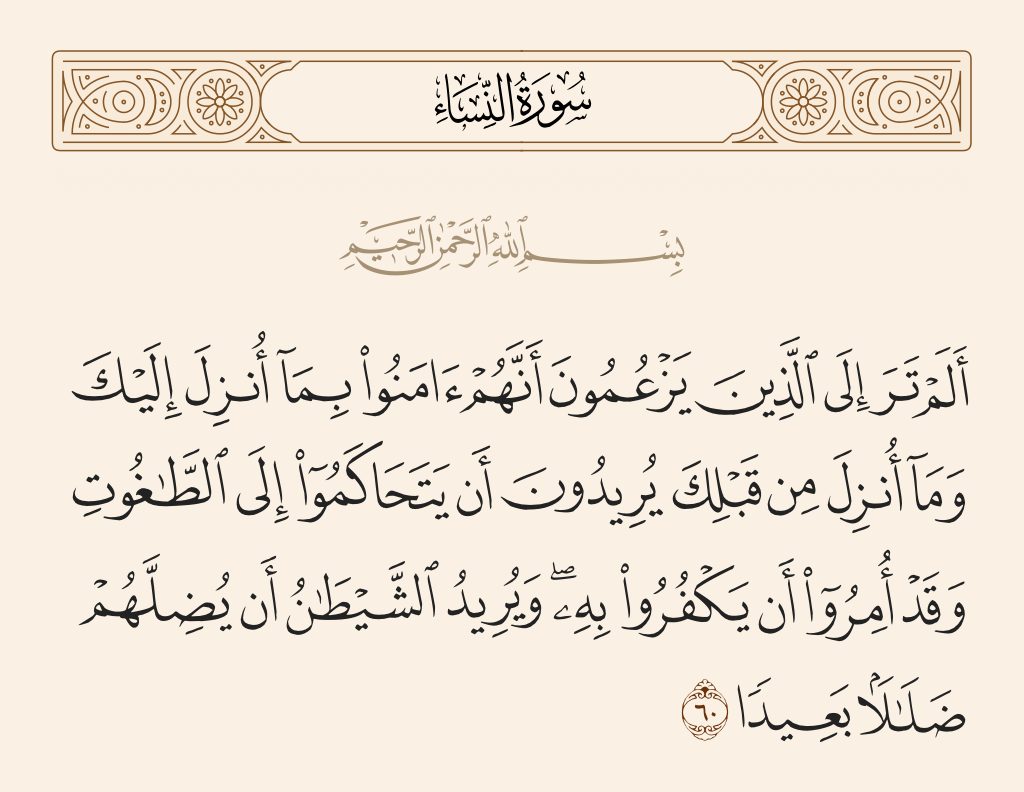 سُورَةُ النِّسَاءِ
بِسْمِ ٱللَّهِ ٱلرَّحْمَٰنِ ٱلرَّحِيمِ
أَلَمْ تَرَ إِلَى ٱلَّذِينَ يَزْعُمُونَ أَنَّهُمْ ءَامَنُوا۟ بِمَآ أُنزِلَ إِلَيْكَ
وَمَآ أُنزِلَ مِن قَبْلِكَ يُرِيدُونَ أَن يَتَحَاكَمُوٓا۟ إِلَى ٱلطَّٰغُوتِ
وَقَدْ أُمِرُوٓا۟ أَن يَكْفُرُوا۟ بِهِۦۖ وَيُرِيدُ ٱلشَّيْطَٰنُ أَن يُضِلَّهُمْ
ضَلَٰلَۢا بَعِيدًا ٦٠